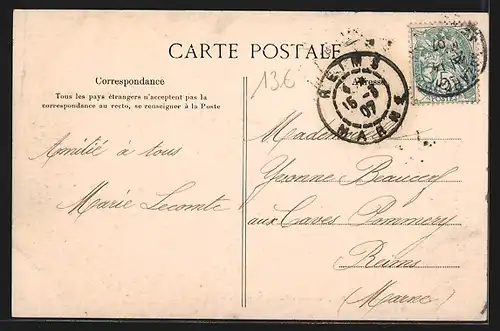 CARTE POSTALE
Correspondance
Tous les pays étrangers n'acceptent pas la
correspondance au recto, se renseigner à la Poste
13€
REIMS
15 - 8
07
MARNE
Amitié à tous
Marie Lecomte
Yvonne
aux Caves Pommery
Reims
(Marne)